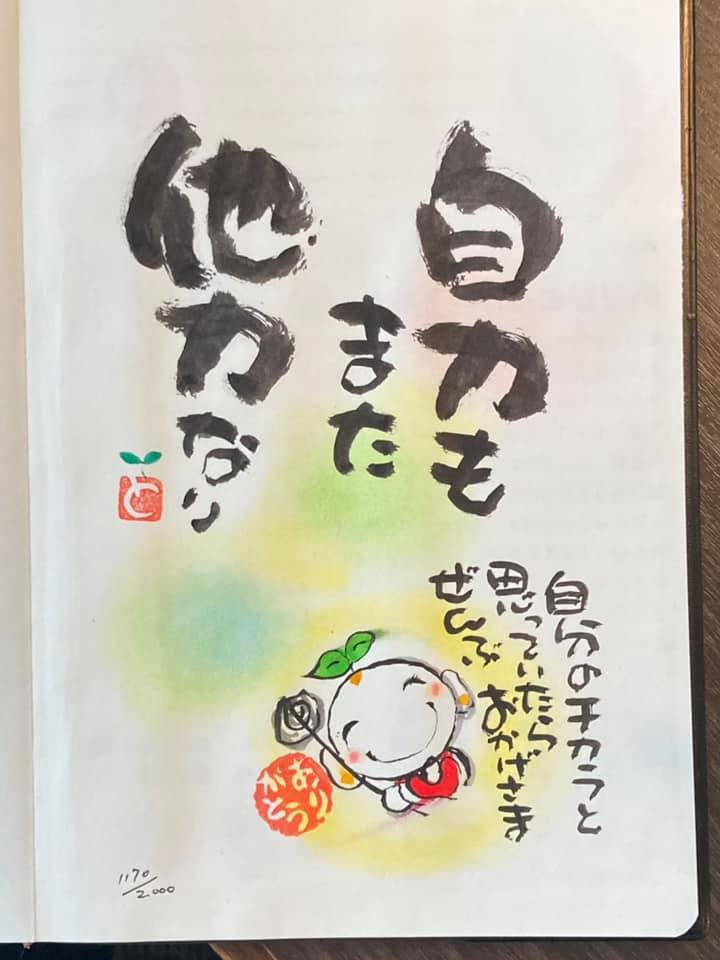 自力も
また
他力なり
と
自分のチカラと
思っていたら
ぜんぶ おかげさま
ありがとう
1170/2000